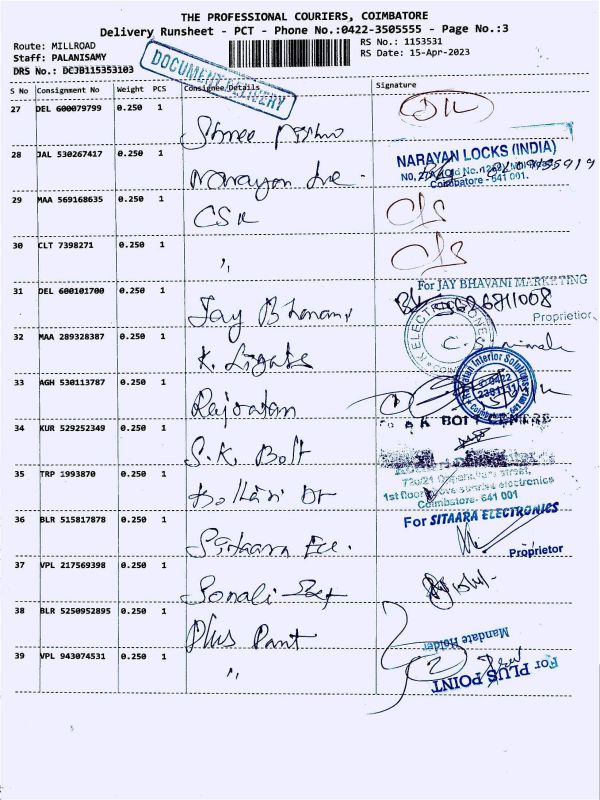 THE PROFESSIONAL COURIERS, COIMBATORE
Delivery Runsheet - PCT - Phone No.:0422-3505555 - Page No.:3
Route: MILLROAD
RS No.: 1153531
Staff: PALANISAMY
RS Date: 15-Apr-2023
DRS No.: DCJB115353103
DOCUMENT DELIVERY
S No Consignment No Weight PCS Consignee Details Signature
27 DEL 600079799 0.250 1
Shree
28 JAL 530267417 0.250 1
Narayan
NARAYAN LOCKS (INDIA)
Coimbatore - 641 001.
29 MAA 569168635 0.250 1
CSK
30 CLT 7398271 0.250 1
"
31 DEL 600101700 0.250 1
Jay Bhavani
For JAY BHAVANI MARKETING
Proprietor
32 MAA 289328387 0.250 1
K. Lights
33 AGH 530113787 0.250 1
Rajratan
Interior Solutions
34 KUR 529252349 0.250 1
S.K. Bolt
BOLT CENTRE
35 TRP 1993870 0.250 1
Kothari
1st floor
electronics
Coimbatore- 641 001
36 BLR 515817878 0.250 1
Sitaara Ele.
For SITAARA ELECTRONICS
Proprietor
37 VPL 217569398 0.250 1
Sonali
38 BLR 5250952895 0.250 1
Plus Point
Mandate Holder
39 VPL 943074531 0.250 1
"
For PLUS POINT